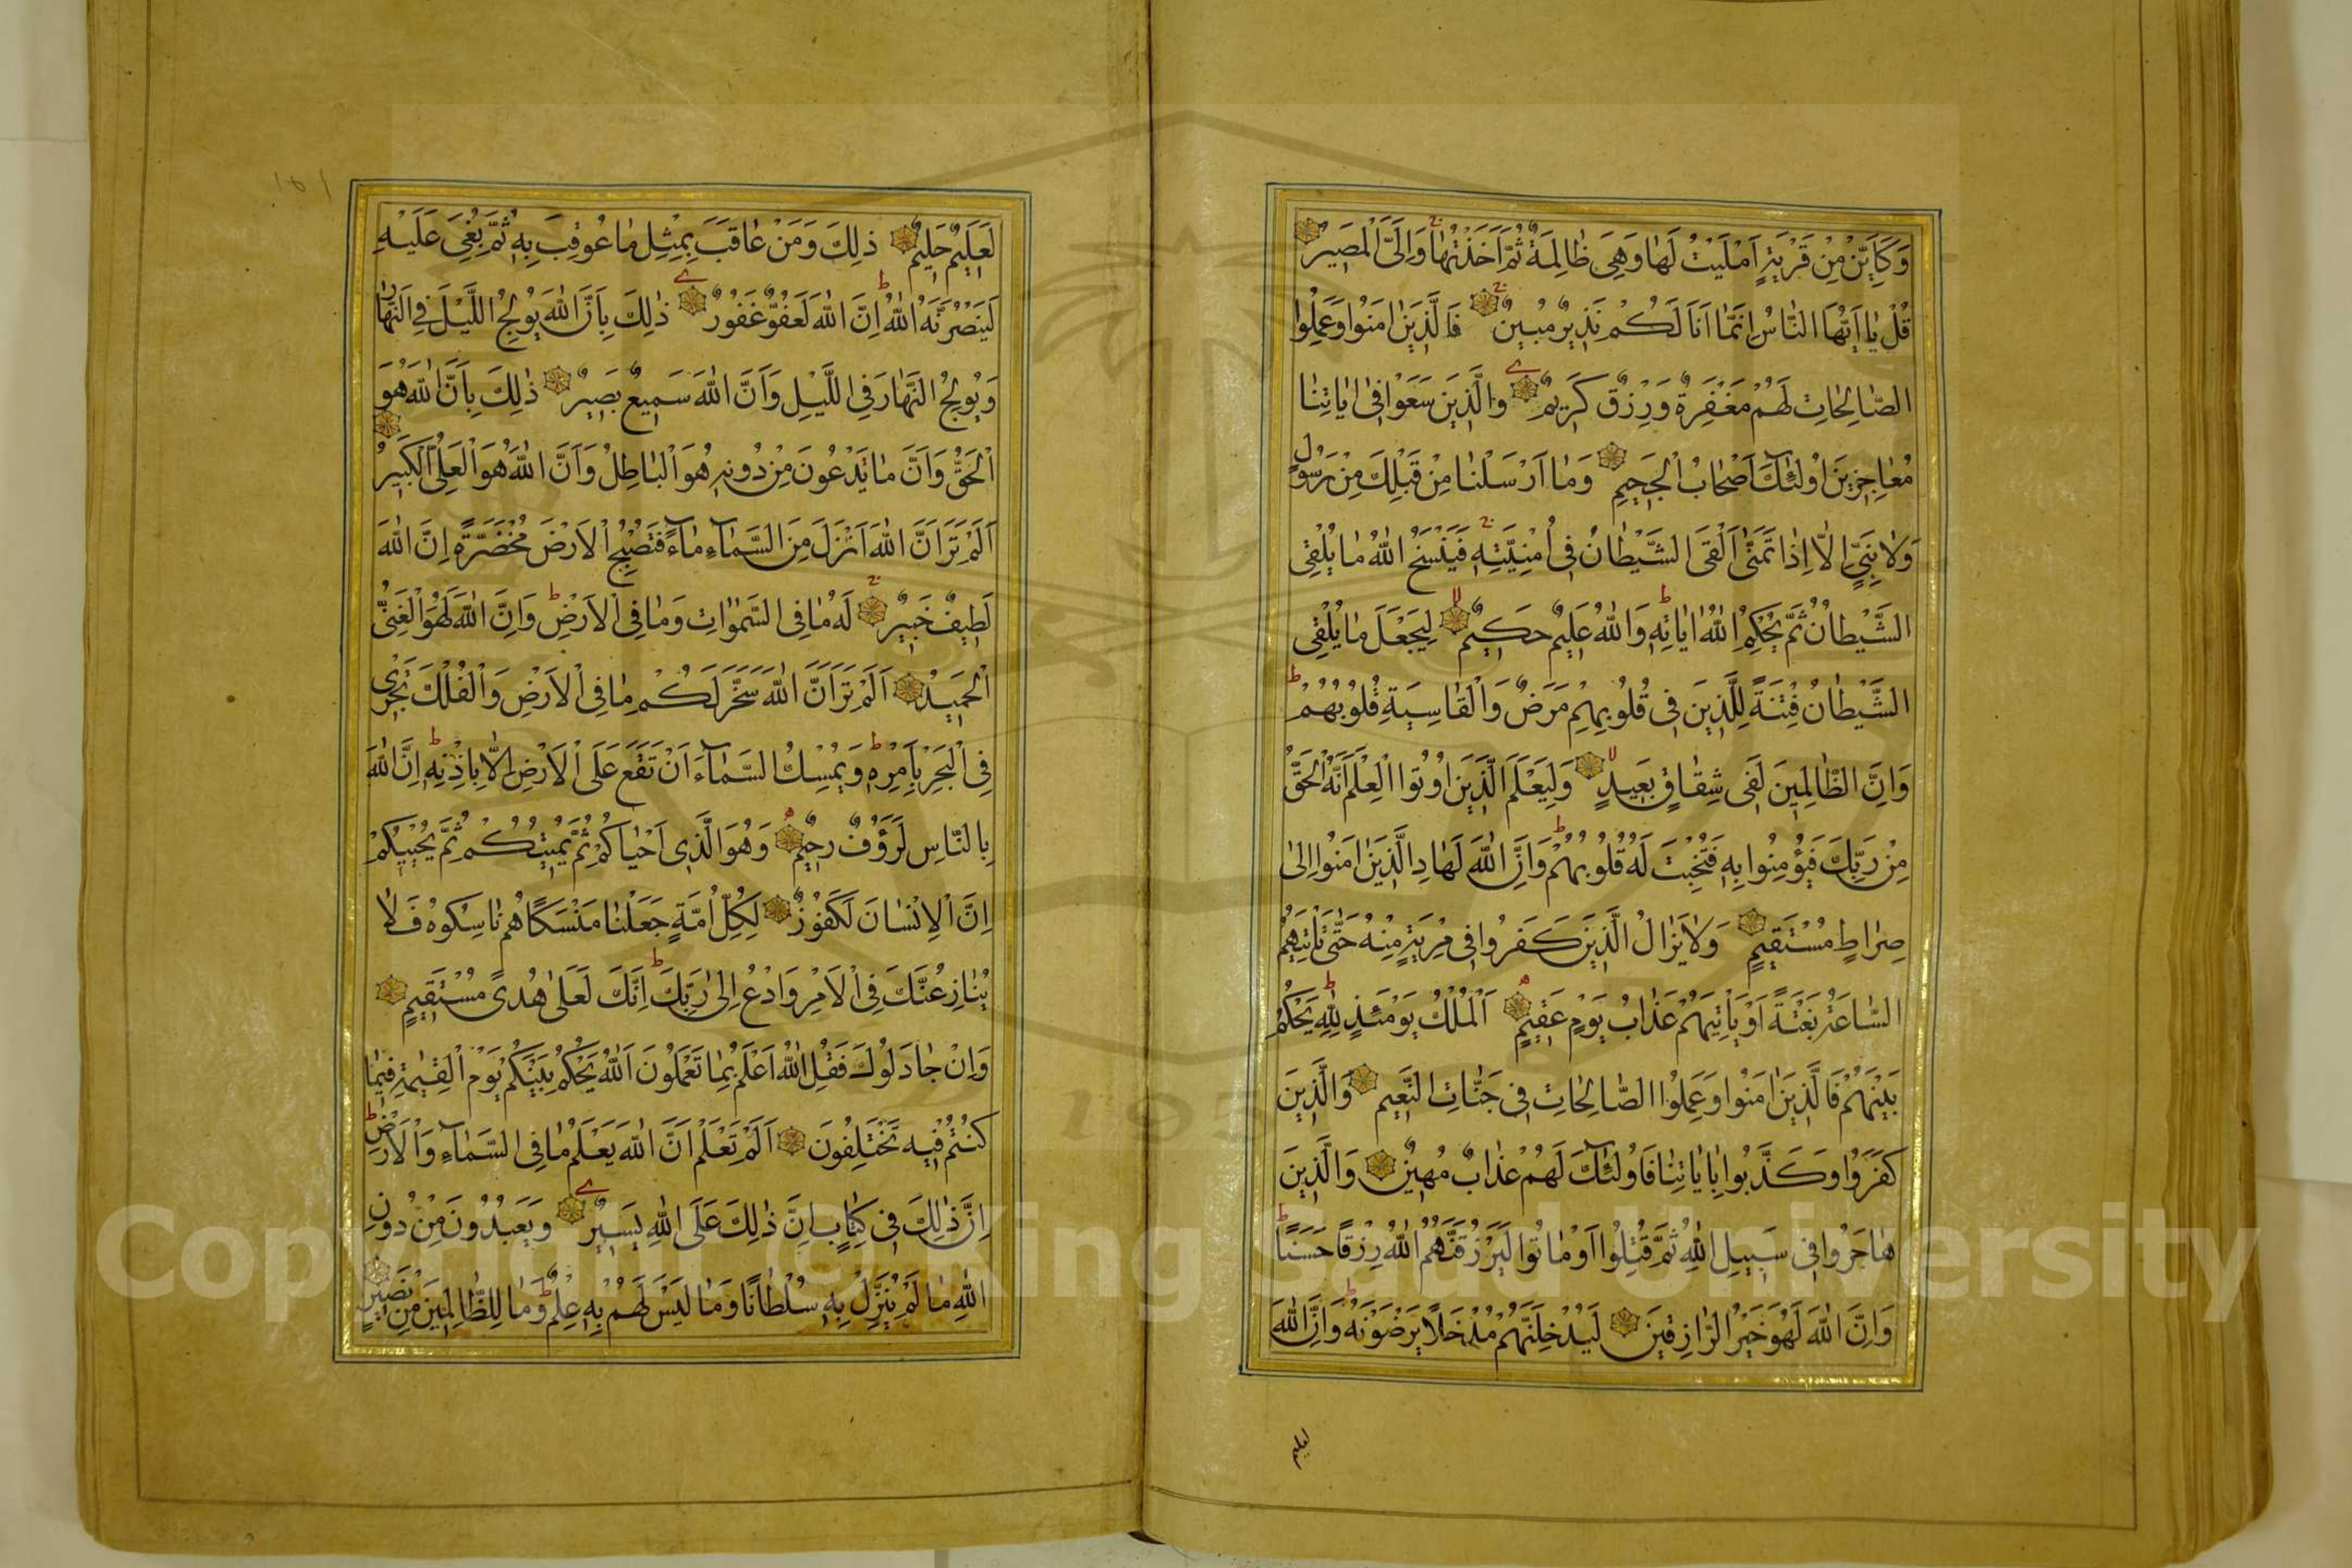 وَكَاَيِّنْ مِنْ قَرْيَةٍ اَمْلَيْتُ لَهَا وَهِيَ ظَالِمَةٌ ثُمَّ اَخَذْتُهَا وَاِلَيَّ الْمَصِيرُ
قُلْ يَا اَيُّهَا النَّاسُ اِنَّمَا اَنَا لَكُمْ نَذِيرٌ مُبِينٌ فَالَّذِينَ اٰمَنُوا وَعَمِلُوا
الصَّالِحَاتِ لَهُمْ مَغْفِرَةٌ وَرِزْقٌ كَرِيمٌ وَالَّذِينَ سَعَوْا فِى اٰيَاتِنَا
مُعَاجِزِينَ اُولٰئِكَ اَصْحَابُ الْجَحِيمِ وَمَا اَرْسَلْنَا مِنْ قَبْلِكَ مِنْ رَسُولٍ
وَلَا نَبِيٍّ اِلَّا اِذَا تَمَنّٰى اَلْقَى الشَّيْطَانُ فِى اُمْنِيَّتِهِ فَيَنْسَخُ اللّٰهُ مَا يُلْقِى
الشَّيْطَانُ ثُمَّ يُحْكِمُ اللّٰهُ اٰيَاتِهِ وَاللّٰهُ عَلِيمٌ حَكِيمٌ لِيَجْعَلَ مَا يُلْقِى
الشَّيْطَانُ فِتْنَةً لِلَّذِينَ فِى قُلُوبِهِمْ مَرَضٌ وَالْقَاسِيَةِ قُلُوبُهُمْ
وَاِنَّ الظَّالِمِينَ لَفِى شِقَاقٍ بَعِيدٍ وَلِيَعْلَمَ الَّذِينَ اُوتُوا الْعِلْمَ اَنَّهُ الْحَقُّ
مِنْ رَبِّكَ فَيُؤْمِنُوا بِهِ فَتُخْبِتَ لَهُ قُلُوبُهُمْ وَاِنَّ اللّٰهَ لَهَادِ الَّذِينَ اٰمَنُوا اِلٰى
صِرَاطٍ مُسْتَقِيمٍ وَلَا يَزَالُ الَّذِينَ كَفَرُوا فِى مِرْيَةٍ مِنْهُ حَتّٰى تَاْتِيَهُمُ
السَّاعَةُ بَغْتَةً اَوْ يَاْتِيَهُمْ عَذَابُ يَوْمٍ عَقِيمٍ اَلْمُلْكُ يَوْمَئِذٍ لِلّٰهِ يَحْكُمُ
بَيْنَهُمْ فَالَّذِينَ اٰمَنُوا وَعَمِلُوا الصَّالِحَاتِ فِى جَنَّاتِ النَّعِيمِ وَالَّذِينَ
كَفَرُوا وَكَذَّبُوا بِاٰيَاتِنَا فَاُولٰئِكَ لَهُمْ عَذَابٌ مُهِينٌ وَالَّذِينَ
هَاجَرُوا فِى سَبِيلِ اللّٰهِ ثُمَّ قُتِلُوا اَوْ مَاتُوا لَيَرْزُقَنَّهُمُ اللّٰهُ رِزْقًا حَسَنًا
وَاِنَّ اللّٰهَ لَهُوَ خَيْرُ الرَّازِقِينَ لَيُدْخِلَنَّهُمْ مُدْخَلًا يَرْضَوْنَهُ وَاِنَّ اللّٰهَ
لعليم
١٥١
لَعَلِيمٌ حَلِيمٌ ذٰلِكَ وَمَنْ عَاقَبَ بِمِثْلِ مَا عُوقِبَ بِهِ ثُمَّ بُغِيَ عَلَيْهِ
لَيَنْصُرَنَّهُ اللّٰهُ اِنَّ اللّٰهَ لَعَفُوٌّ غَفُورٌ ذٰلِكَ بِاَنَّ اللّٰهَ يُولِجُ اللَّيْلَ فِى النَّهَارِ
وَيُولِجُ النَّهَارَ فِى اللَّيْلِ وَاَنَّ اللّٰهَ سَمِيعٌ بَصِيرٌ ذٰلِكَ بِاَنَّ اللّٰهَ هُوَ
الْحَقُّ وَاَنَّ مَا يَدْعُونَ مِنْ دُونِهِ هُوَ الْبَاطِلُ وَاَنَّ اللّٰهَ هُوَ الْعَلِيُّ الْكَبِيرُ
اَلَمْ تَرَ اَنَّ اللّٰهَ اَنْزَلَ مِنَ السَّمَآءِ مَآءً فَتُصْبِحُ الْاَرْضُ مُخْضَرَّةً اِنَّ اللّٰهَ
لَطِيفٌ خَبِيرٌ لَهُ مَا فِى السَّمٰوَاتِ وَمَا فِى الْاَرْضِ وَاِنَّ اللّٰهَ لَهُوَ الْغَنِيُّ
الْحَمِيدُ اَلَمْ تَرَ اَنَّ اللّٰهَ سَخَّرَ لَكُمْ مَا فِى الْاَرْضِ وَالْفُلْكَ تَجْرِى
فِى الْبَحْرِ بِاَمْرِهِ وَيُمْسِكُ السَّمَآءَ اَنْ تَقَعَ عَلَى الْاَرْضِ اِلَّا بِاِذْنِهِ اِنَّ اللّٰهَ
بِالنَّاسِ لَرَؤُفٌ رَحِيمٌ وَهُوَ الَّذِى اَحْيَاكُمْ ثُمَّ يُمِيتُكُمْ ثُمَّ يُحْيِيكُمْ
اِنَّ الْاِنْسَانَ لَكَفُورٌ لِكُلِّ اُمَّةٍ جَعَلْنَا مَنْسَكًا هُمْ نَاسِكُوهُ فَلَا
يُنَازِعُنَّكَ فِى الْاَمْرِ وَادْعُ اِلٰى رَبِّكَ اِنَّكَ لَعَلٰى هُدًى مُسْتَقِيمٍ
وَاِنْ جَادَلُوكَ فَقُلِ اللّٰهُ اَعْلَمُ بِمَا تَعْمَلُونَ اَللّٰهُ يَحْكُمُ بَيْنَكُمْ يَوْمَ الْقِيٰمَةِ فِيمَا
كُنْتُمْ فِيهِ تَخْتَلِفُونَ اَلَمْ تَعْلَمْ اَنَّ اللّٰهَ يَعْلَمُ مَا فِى السَّمَآءِ وَالْاَرْضِ
اِنَّ ذٰلِكَ فِى كِتَابٍ اِنَّ ذٰلِكَ عَلَى اللّٰهِ يَسِيرٌ وَيَعْبُدُونَ مِنْ دُونِ
اللّٰهِ مَا لَمْ يُنَزِّلْ بِهِ سُلْطَانًا وَمَا لَيْسَ لَهُمْ بِهِ عِلْمٌ وَمَا لِلظَّالِمِينَ مِنْ نَصِيرٍ
Copyright © King Saud University
195